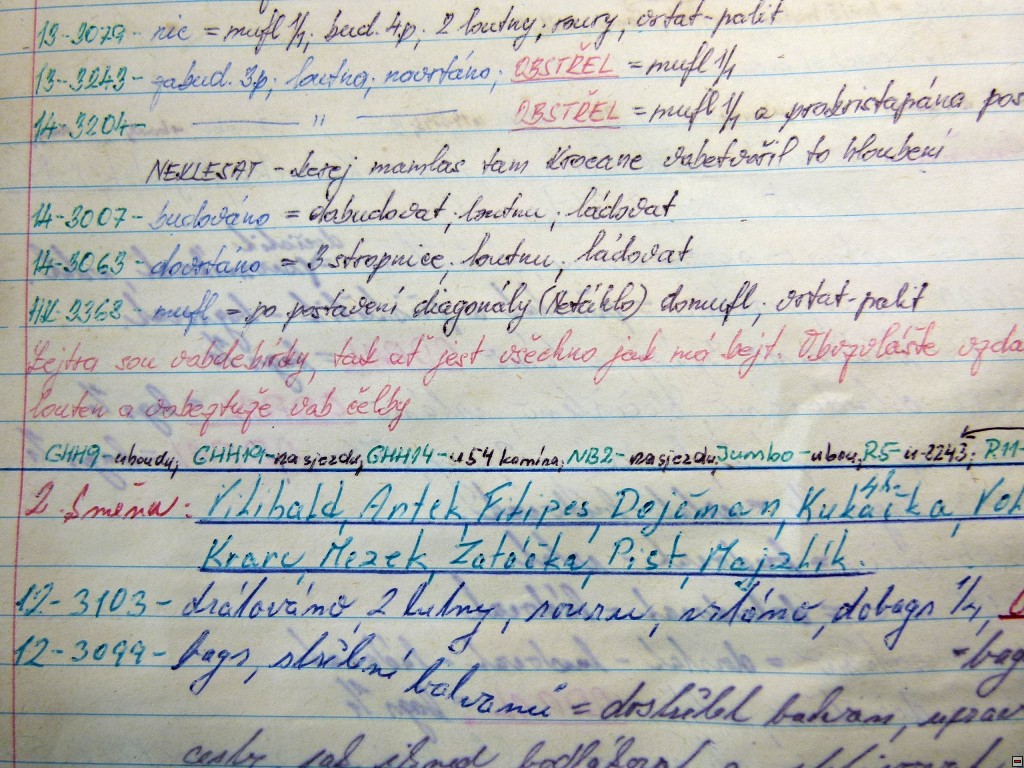 13-3079- nic = mufl 1/1, bud. 4p, 2 loutny, roury, vrtat-palit
13-3243- zabud. 3p, loutna, navrtáno, OBSTŘEL = mufl 1/1
14-3204- —— " —— OBSTŘEL = mufl 1/1 a
NEKLESAT - kerej mamlas tam to hloubení
14-3007- budováno = dobudovat, loutnu, ládovat
14-3063- dovrtáno = 3 stropnice, loutnu, ládovat
2368- mufl = po postavení diagonály (Netáhlo) domufl, vrtat-palit
Zejtra sou, tak ať jest všechno jak má bejt. Obvzvláště vzda
louten a čelby
GHH9- uboudy, GHH19- na sjezdu, GHH14- u 54 komína, NB2- na sjezdu, Jumbo- ubou, R5- u-2243, R11-
2. Směna: Vilibald, Antek, Filipes, Dojčman, Kukačka 4h-,
Kraru, Mezek, Zatáčka, Pist, Majzlík.
12-3103- drátováno, 2 lutny, rouru, vrtáno, dobagr 1/1,
12-3099- bagr, střílení balvanů = dostřílet balvan, uprav
- bag
cesty jak